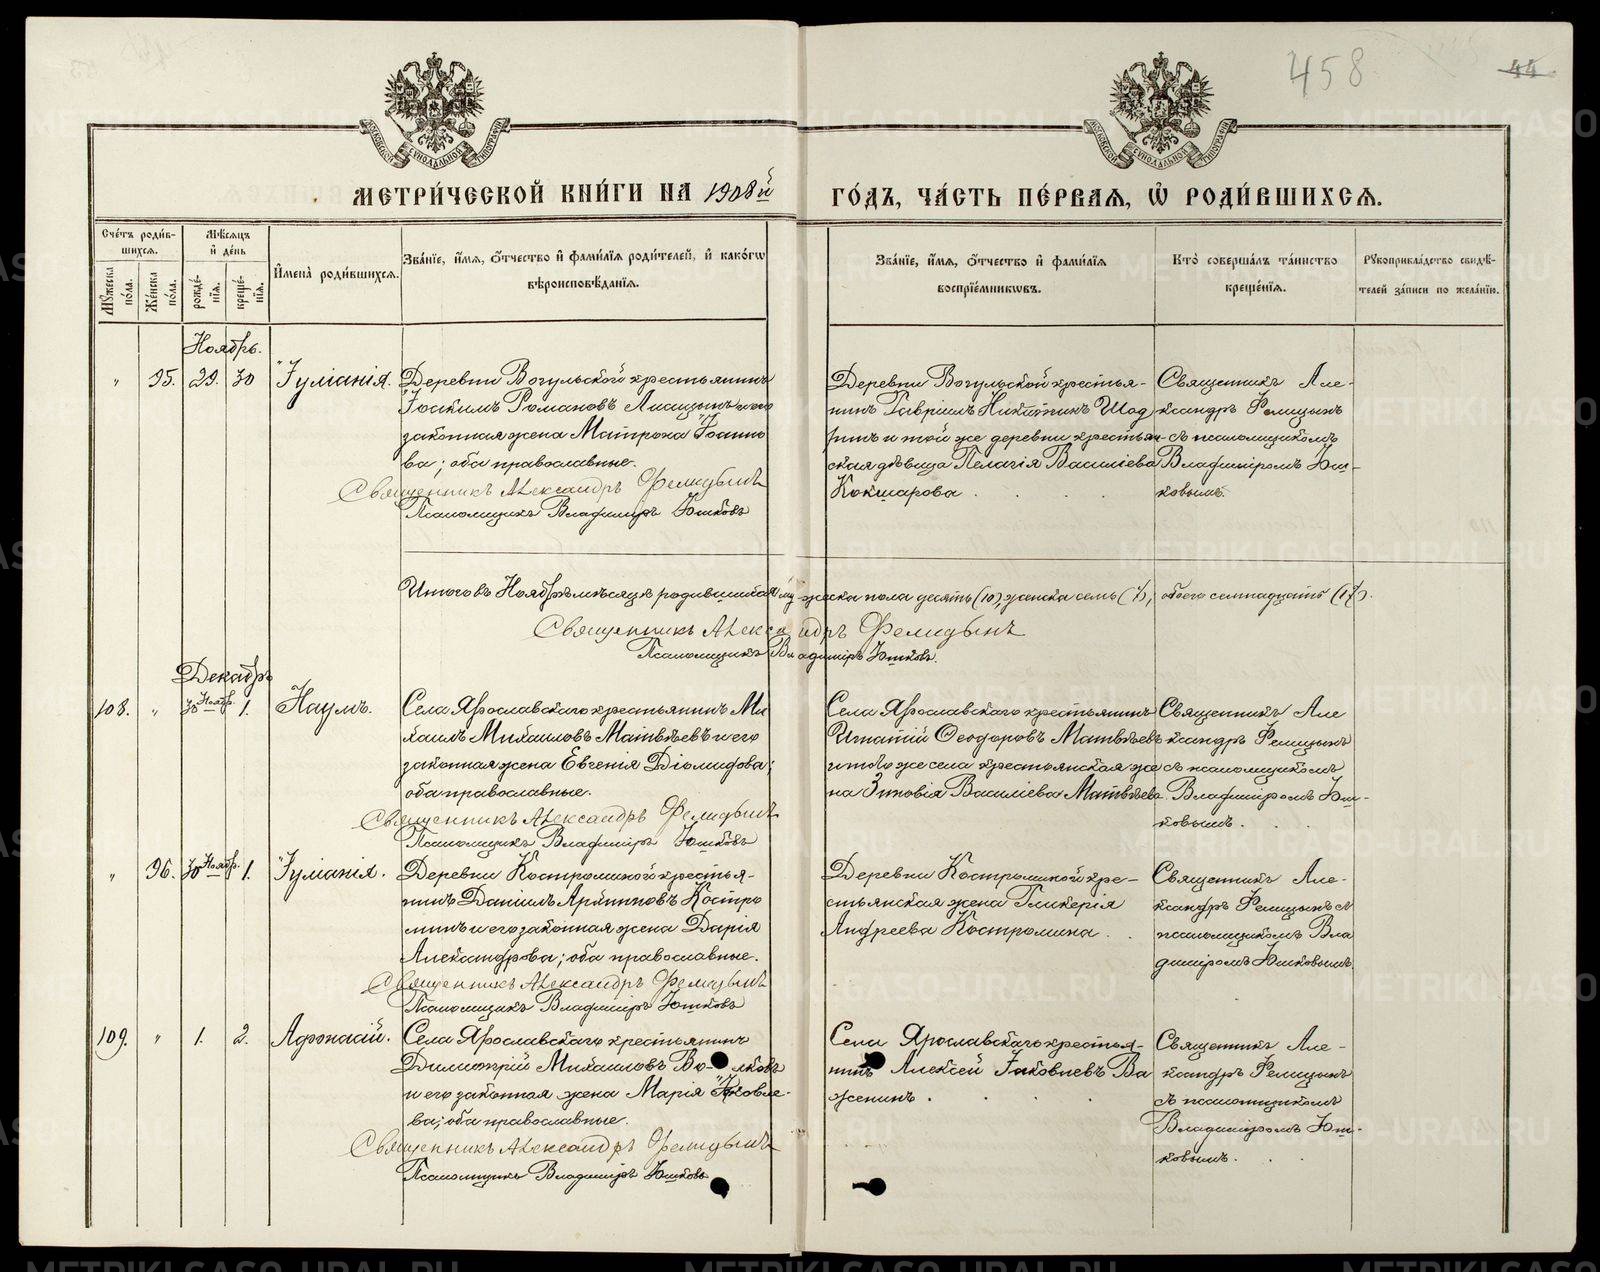 458
44
МОСКОВСКОЙ СѴНОДАЛЬНОЙ ТИПОГРАФІИ
МОСКОВСКОЙ СѴНОДАЛЬНОЙ ТИПОГРАФІИ
МЕТРИ́ЧЕСКОЙ КНИ́ГИ НА 1908й ГО́ДЪ, ЧА́СТЬ ПЕ́РВАѦ, Ѡ҆ РОДИ́ВШИХСѦ.
Сче́тъ роди́в-
шихсѧ.
Мꙋ́жеска по́ла.
Же́нска по́ла.
Мѣ́сѧцъ
и҆ де́нь
рожде́-
нїѧ.
креще́-
нїѧ.
И҆мена̀ роди́вшихсѧ.
Зва́нїе, и҆́мѧ, ѻ҆́тчество и҆ фами́лїѧ роди́телей, и҆ како́гѡ
вѣроисповѣ́данїѧ.
Зва́нїе, и҆́мѧ, ѻ҆́тчество и҆ фами́лїѧ
воспрїе́мникѡвъ.
Кто̀ соверша́лъ та́инство
креще́нїѧ.
Рꙋкоприкла́дство свидѣ́-
телей за́писи по жела́нїю.
Ноябрь.
" 95. 29. 30 Іуліанія.
Деревни Вогульской крестьянинъ
Іоакимъ Романовъ Лисицынъ и его
законная жена Матрона Іоанно
ва; оба православные.
Священникъ Александръ Фелицынъ
Псаломщикъ Владиміръ Юшковъ
Деревни Вогульской крестья-
нинъ Гавріилъ Никитинъ Шад
ринъ и той же деревни крестьян-
ская дѣвица Пелагія Василіева
Кокшарова
Священникъ Але-
ксандръ Фелицынъ
съ псаломщикомъ
Владиміромъ Юш-
ковымъ.
Итого въ Ноябрѣ мѣсяцѣ родившихся муж-еска пола десять (10), женска семь (7), обоего семнадцать (17).
Священникъ Александръ Фелицынъ
Псаломщикъ Владиміръ Юшковъ.
Декабрь
108. " 30 Ноябр. 1. Наумъ.
Села Ярославскаго крестьянинъ Ми
хаилъ Михаиловъ Матвѣевъ и его
законная жена Евгенія Діомидова;
оба православные.
Священникъ Александръ Фелицынъ
Псаломщикъ Владиміръ Юшковъ
Села Ярославскаго крестьянинъ
Игнатій Ѳеодоровъ Матвѣевъ
и того же села крестьянская же
на Зиновія Василіева Матвѣева
Священникъ Але
ксандръ Фелицынъ
съ псаломщикомъ
Владиміромъ Юш-
ковымъ.
" 96. 30 Ноябр. 1. Іуліанія.
Деревни Костроминой крестья-
нинъ Даніилъ Архиповъ Костро
минъ и его законная жена Дарія
Александрова; оба православные.
Священникъ Александръ Фелицынъ
Псаломщикъ Владиміръ Юшковъ
Деревни Костроминой кре-
стьянская жена Гликерія
Андреева Костромина.
Священникъ Але-
ксандръ Фелицынъ съ
псаломщикомъ Вла
диміромъ Юшковымъ.
109. " 1. 2. Афонасій.
Села Ярославскаго крестьянинъ
Димитрій Михаиловъ Во лковъ
и его законная жена Марія Іаковле-
ва; оба православные.
Священникъ Александръ Фелицынъ
Псаломщикъ Владиміръ Юшковъ
Села Ярославскаго крестья-
нинъ Алексѣй Іаковлевъ Ва
женинъ.
Священникъ Але-
ксандръ Фелицынъ
съ псаломщикомъ
Владиміромъ Юш-
ковымъ.
METRIKI.GASO-URAL.RU